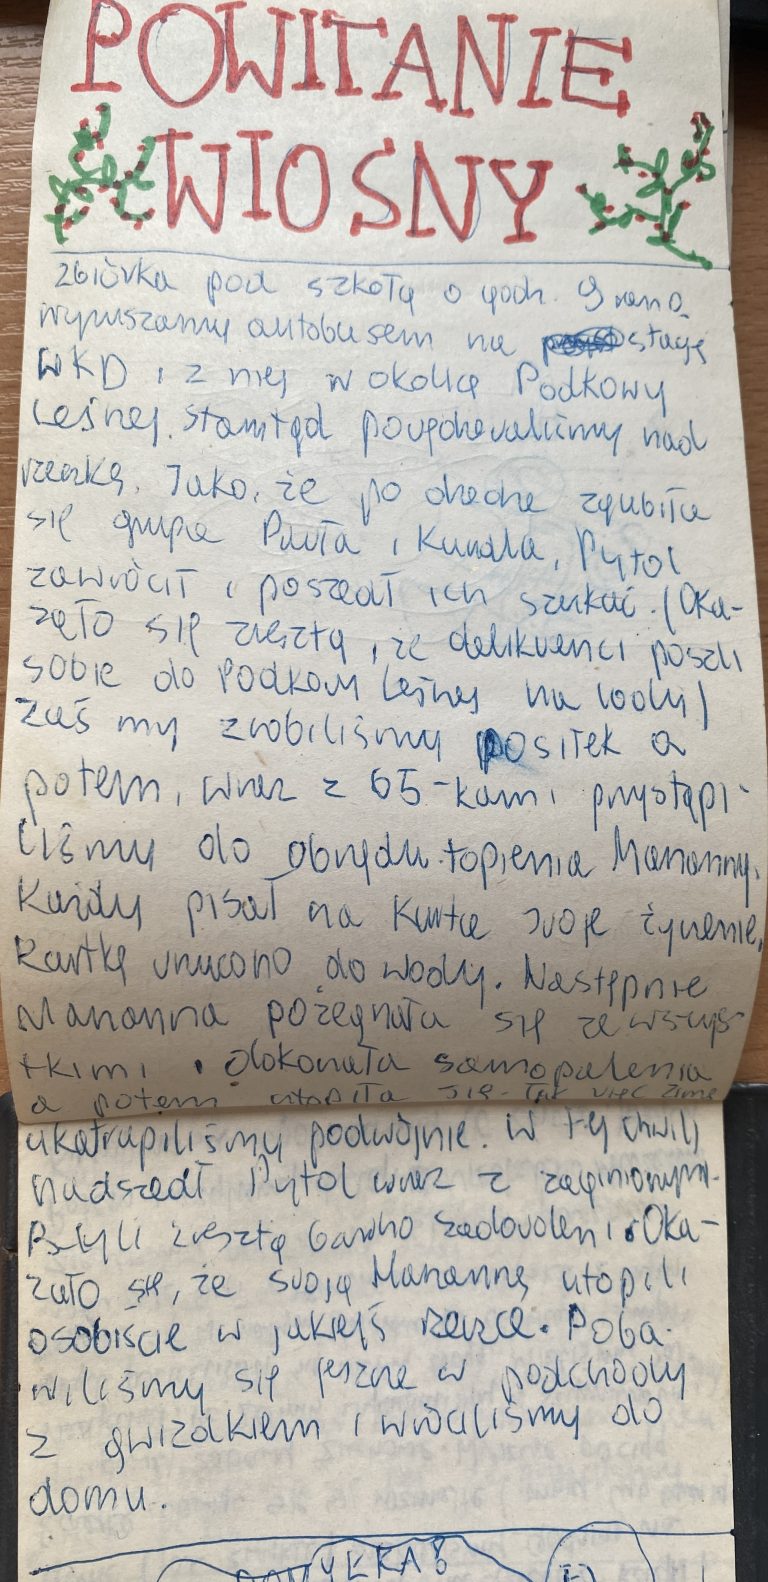 POWITANIE
WIOSNY
Zbiórka pod szkołą o godz. 9 rano.
wyruszamy autobusem na stację
WKD i z niej w okolicę Podkowy
Leśnej. Stamtąd powędrowaliśmy nad
rzeczkę. Jako, że po drodze zgubiła
się grupa Pawła i Kundla, Pytol
zawrócił i poszedł ich szukać. (Oka-
zało się zresztą, że delikwenci poszli
sobie do Podkowy Leśnej na lody)
Zaś my zrobiliśmy posiłek a
potem, wraz z 65-kami przystąpi-
liśmy do obrzędu topienia Marzanny.
Każdy pisał na kartce swoje życzenie,
Kartkę wrzucono do wody. Następnie
Marzanna pożegnała się ze wszys-
tkimi i dokonała samopalenia
a potem utopiła się. Tak więc zimę
ukatrupiliśmy podwójnie. W tej chwili
nadszedł Pytol wraz z zaginionymi.
Byli zresztą bardzo zadowoleni. Oka-
zało się, że swoją Marzannę utopili
osobiście w jakiejś rzeczce. Poba-
wiliśmy się jeszcze w podchody
z gwizdkiem i wróciliśmy do
domu.